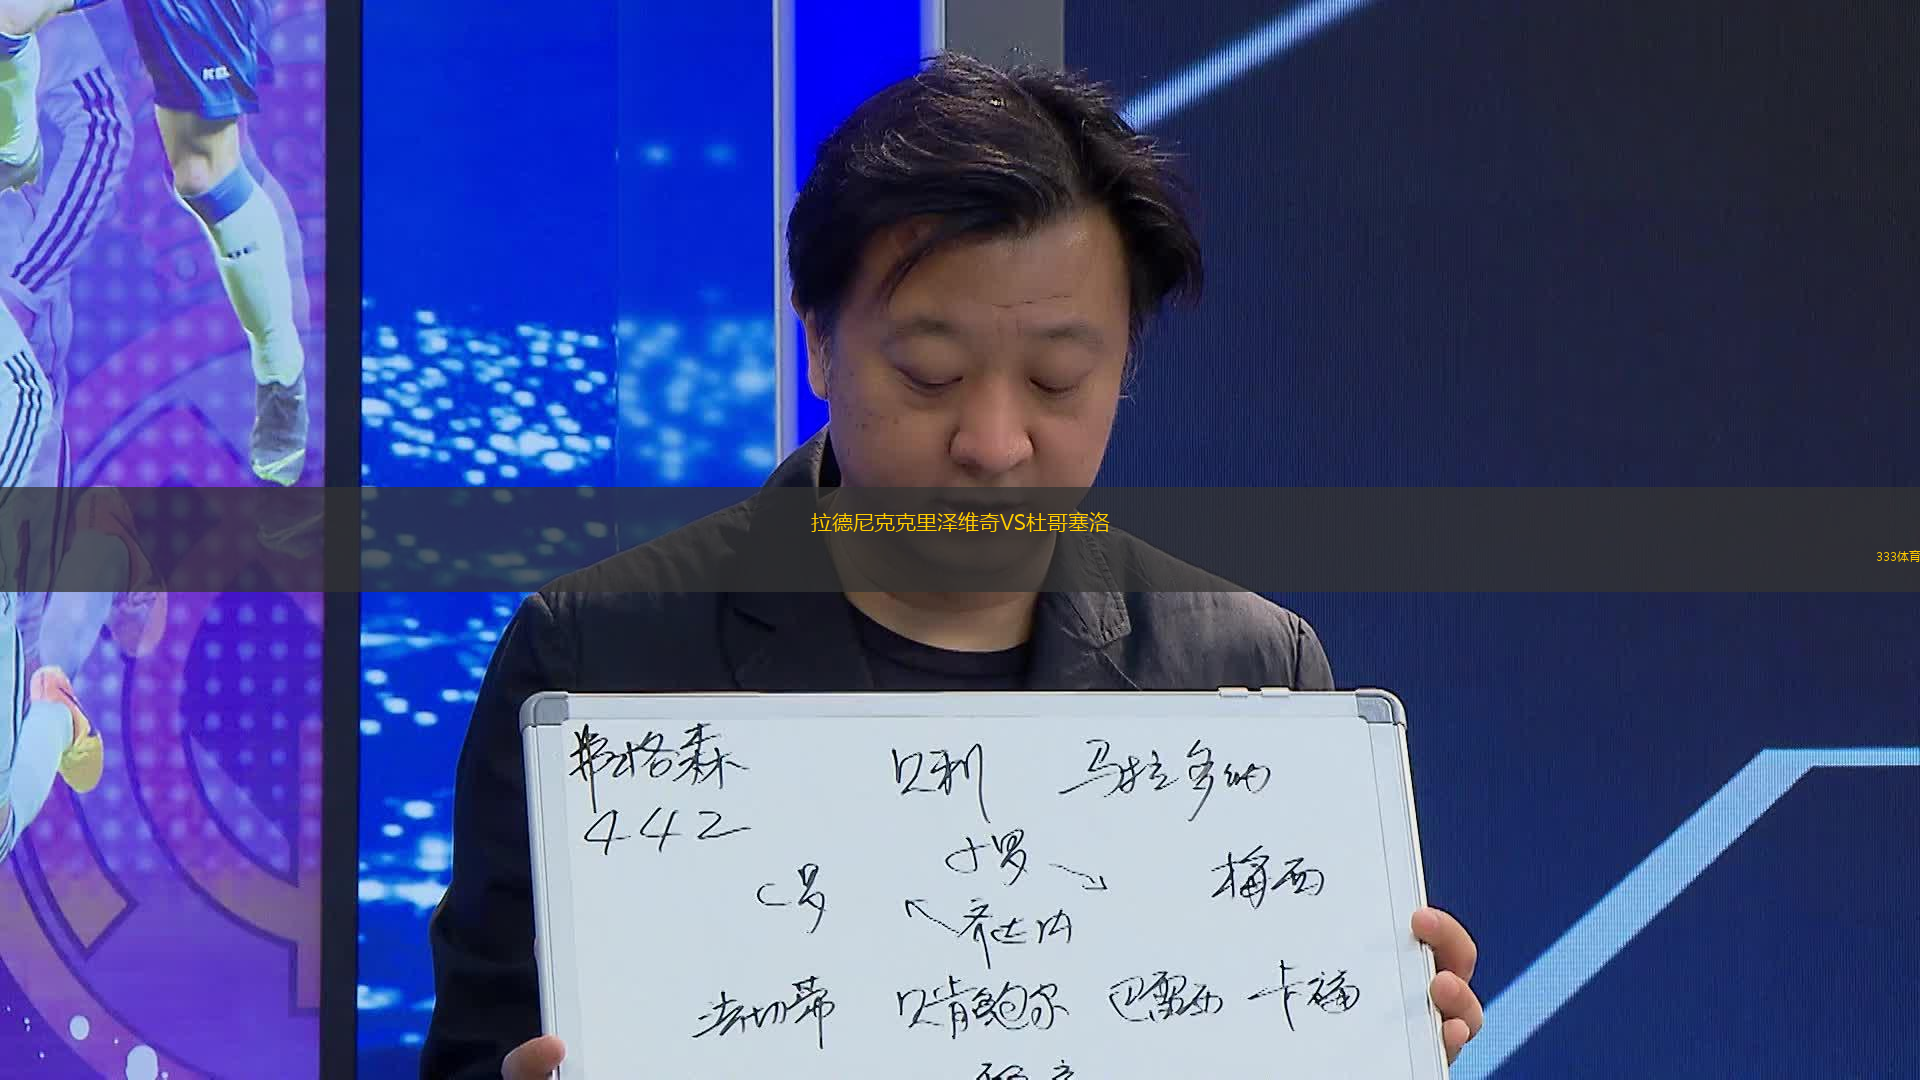 拉德尼克克里泽维奇VS杜哥塞洛
333体育
弗格森 贝利 马拉多纳
442
小罗
C罗 梅西
齐达内
法切蒂 贝肯鲍尔 巴雷西 卡福